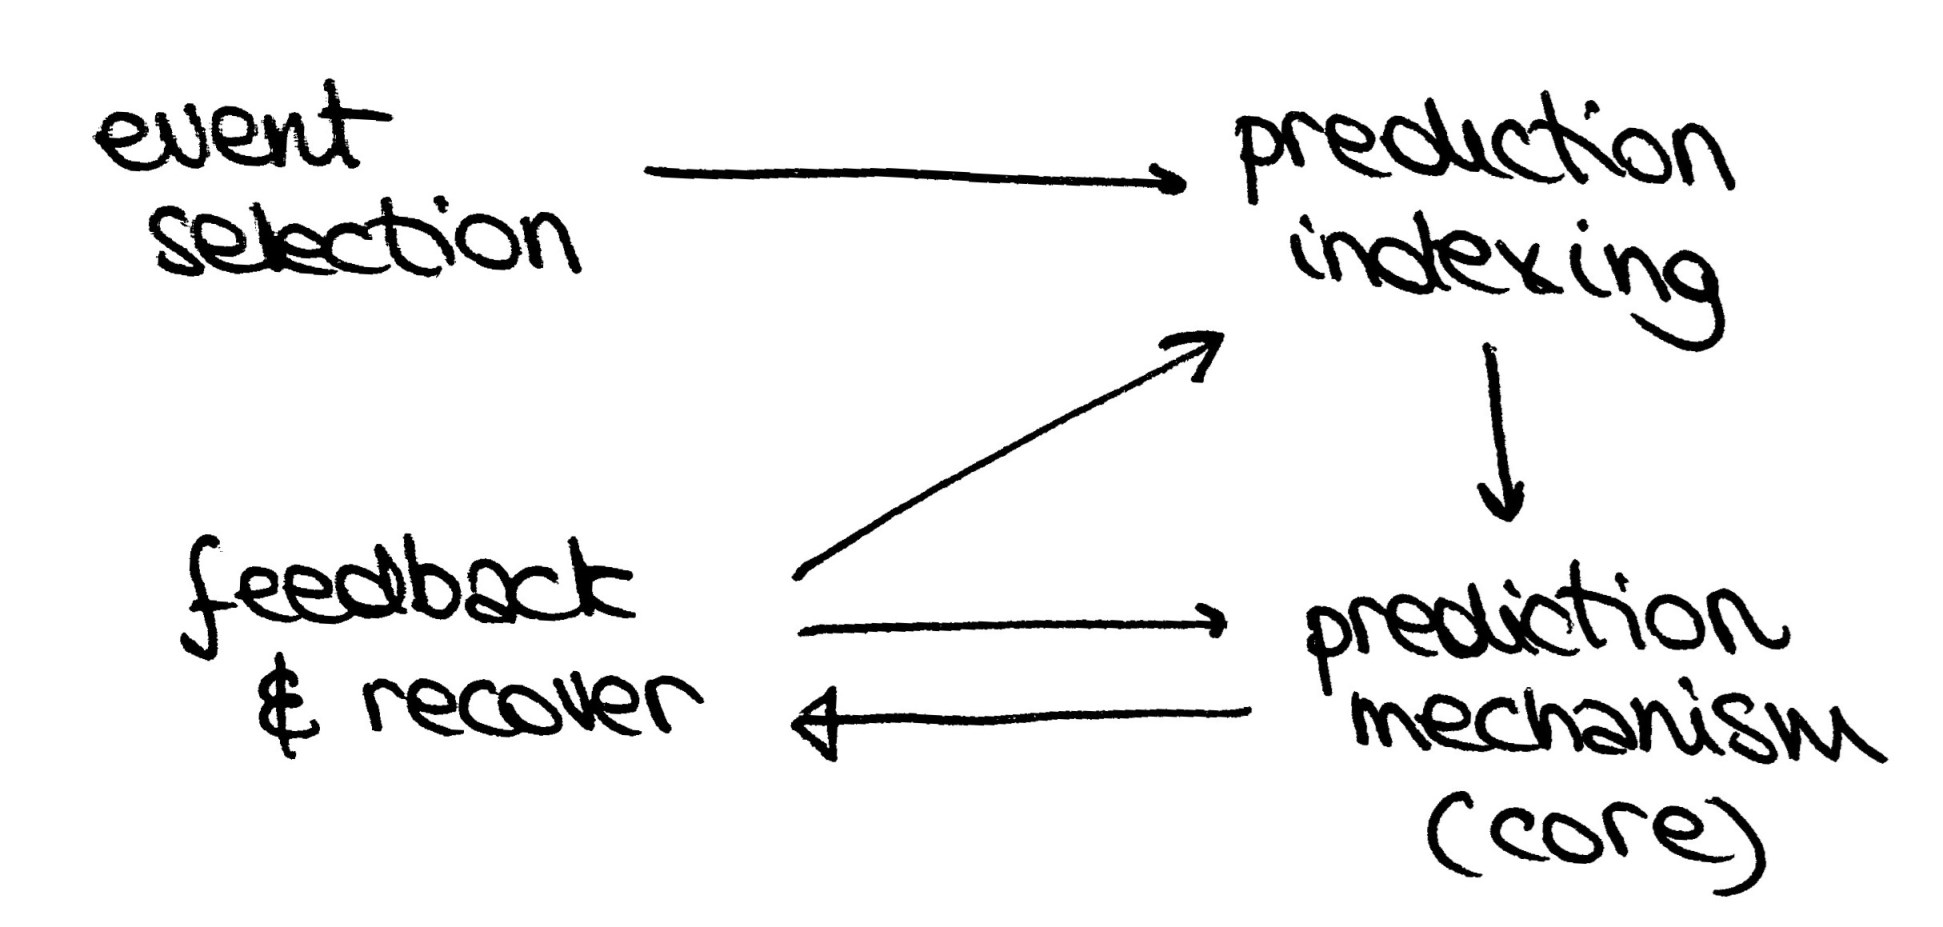 event
selection
prediction
indexing
feedback
& recover
prediction
mechanism
(core)